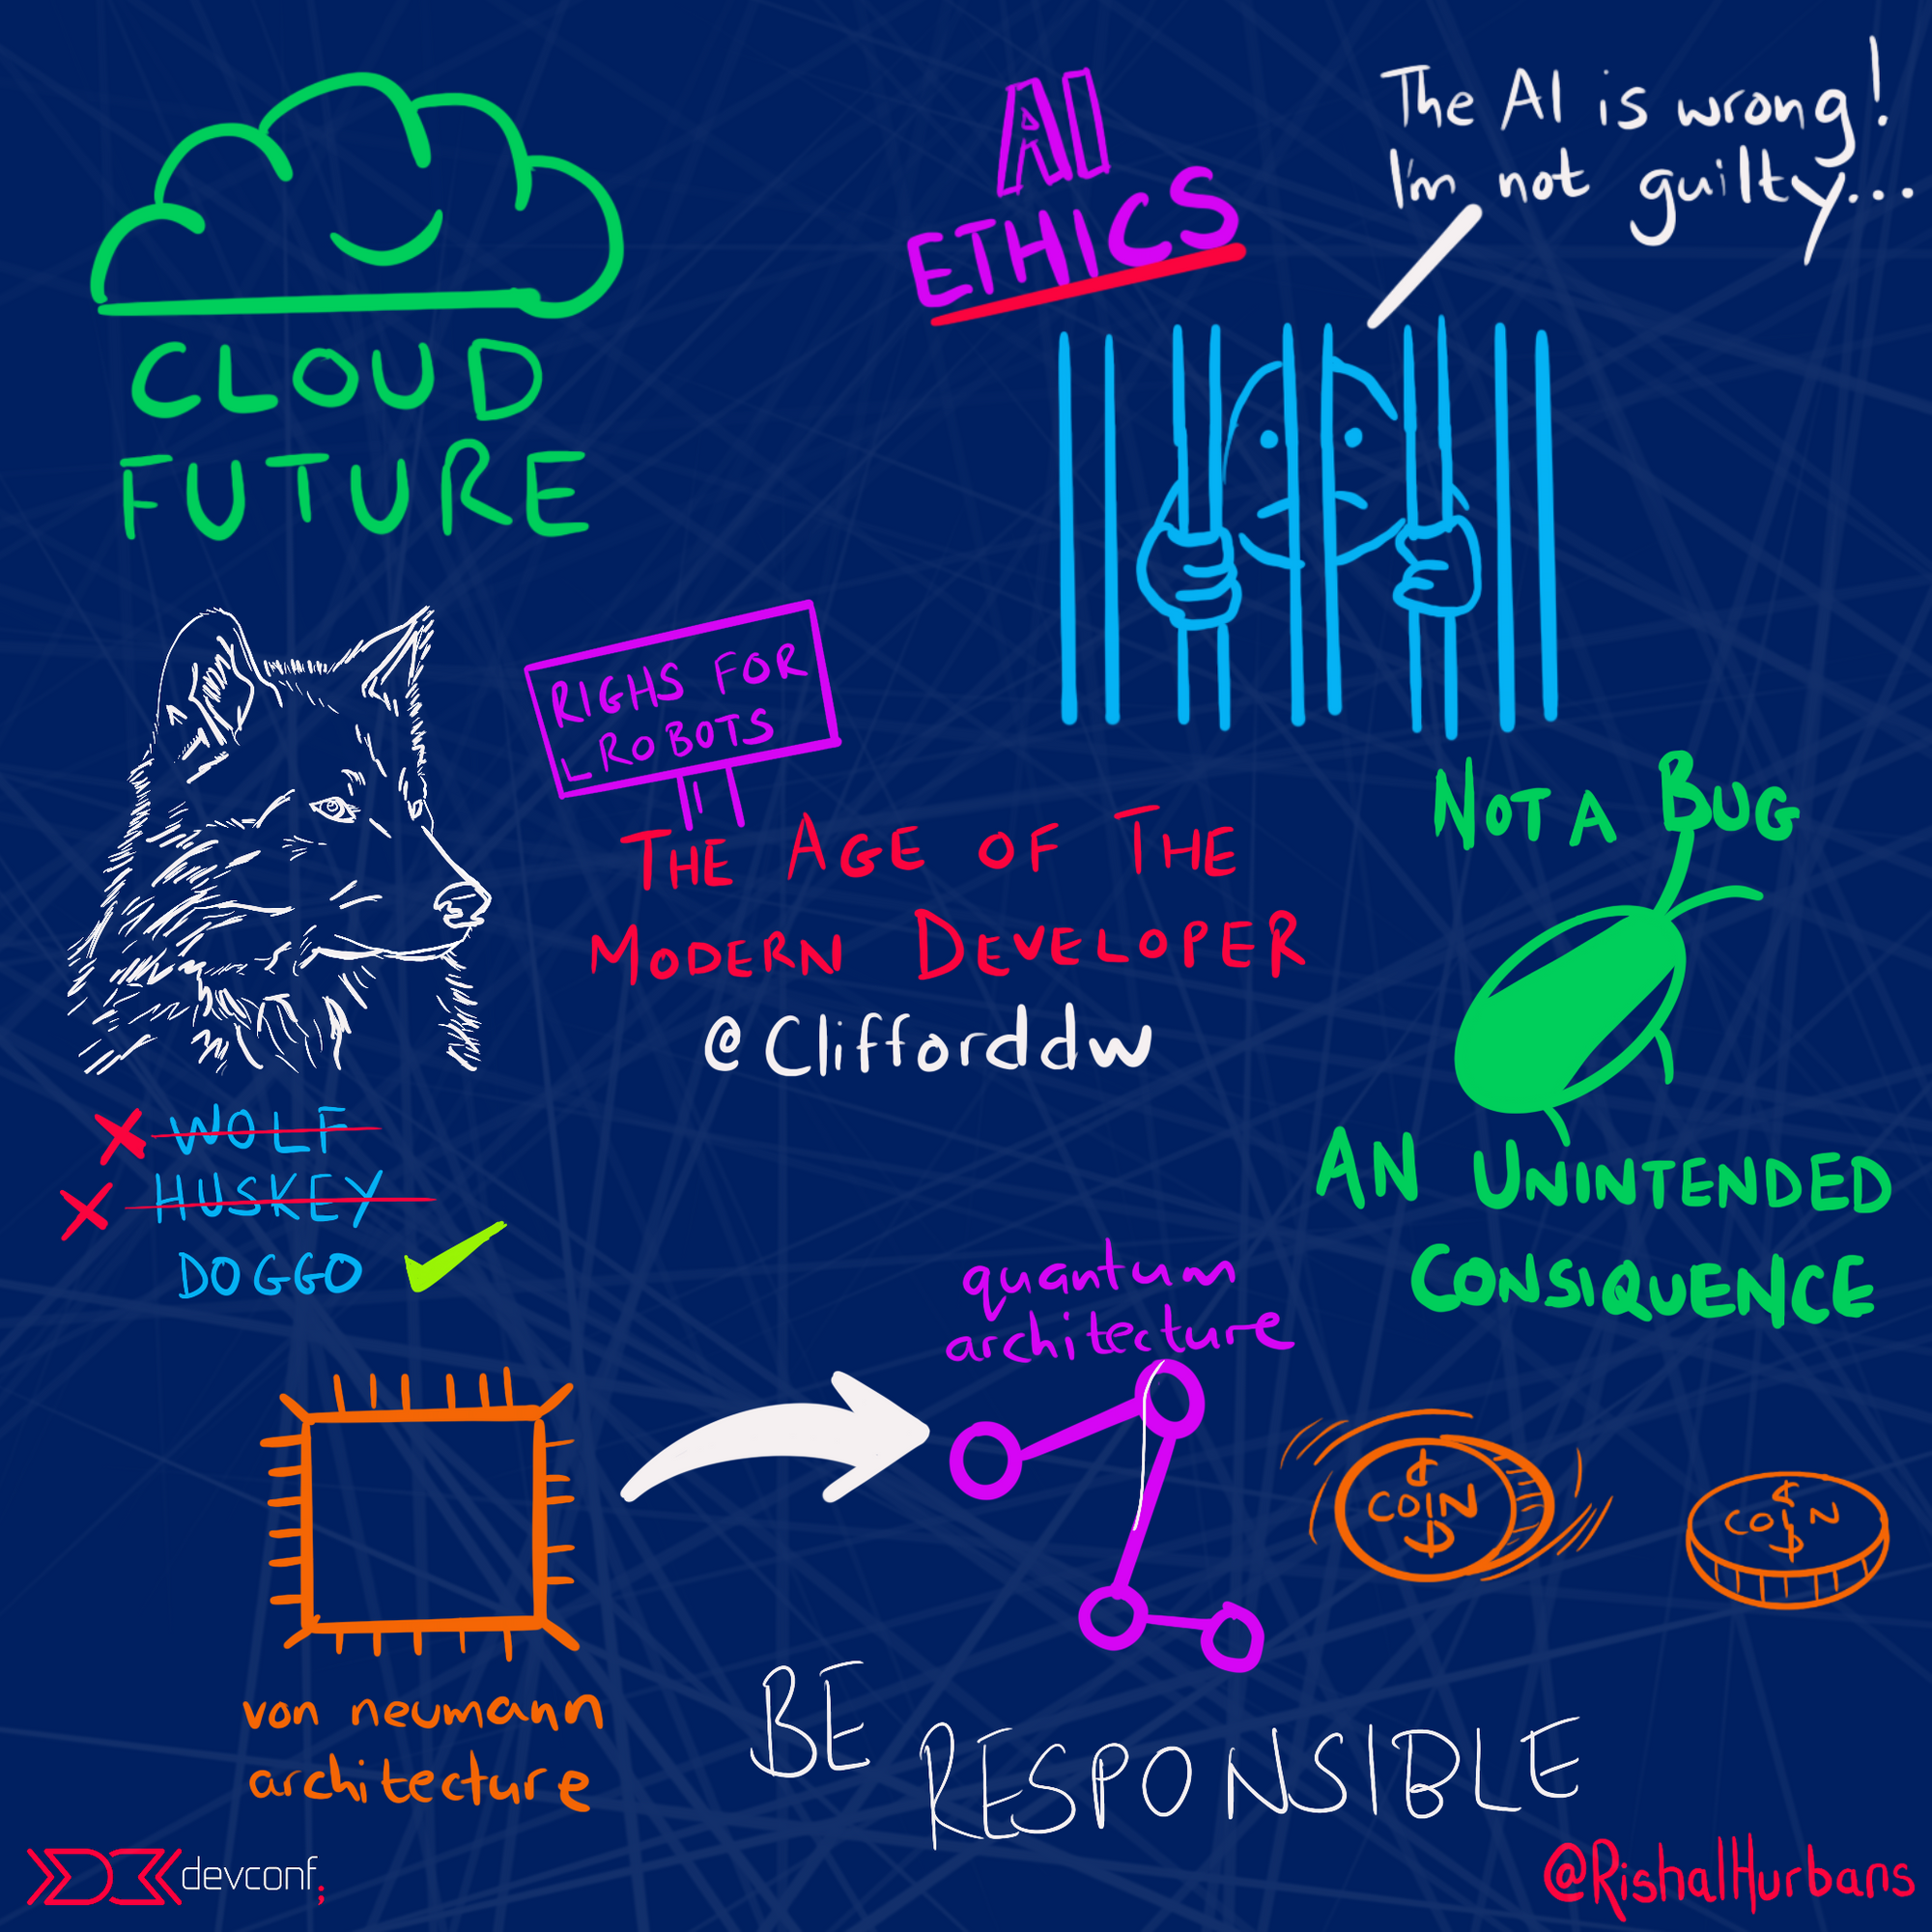 CLOUD
FUTURE
AI
ETHICS
The AI is wrong!
I'm not guilty...
RIGHS FOR
ROBOTS
THE AGE OF THE
MODERN DEVELOPER
@Clifforddw
NOT A BUG
AN UNINTENDED
CONSIQUENCE
WOLF
HUSKEY
DOGGO
quantum
architecture
von neumann
architecture
COIN
COIN
BE
RESPONSIBLE
devconf;
@RishalHurbans